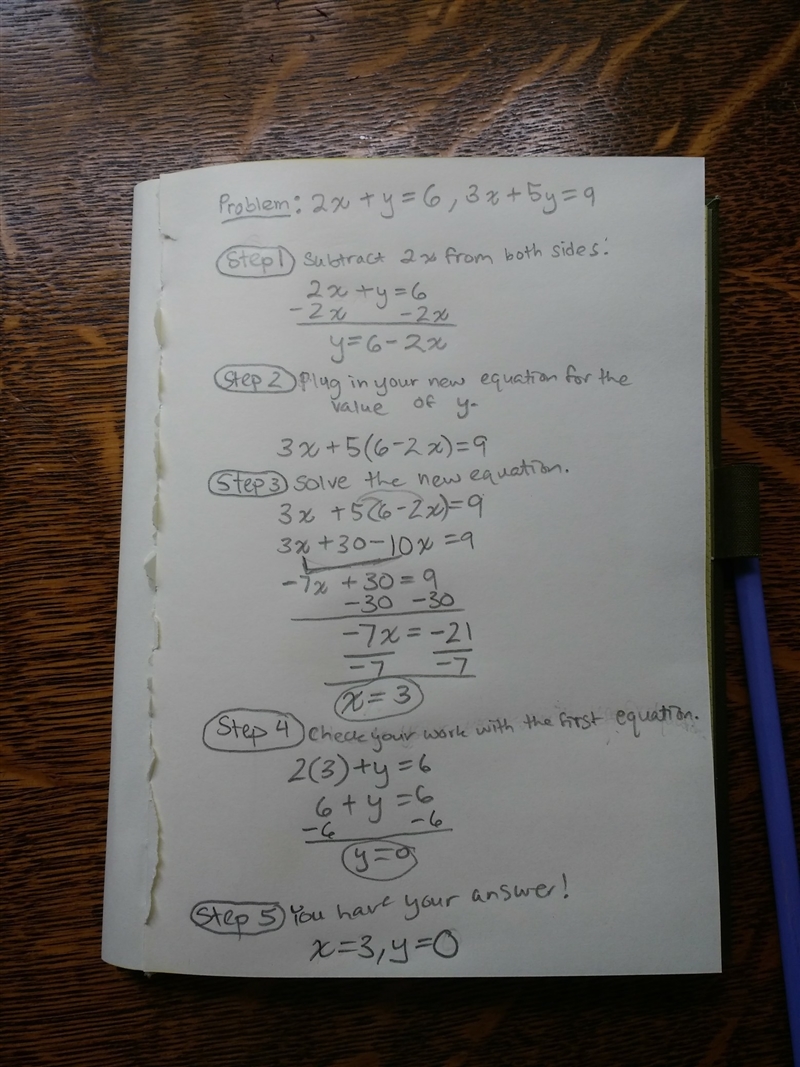 Problem: 2x + y = 6, 3x + 5y = 9
Step 1 Subtract 2x from both sides:
2x + y = 6
-2x -2x
y = 6 - 2x
Step 2 Plug in your new equation for the
value of y.
3x + 5(6 - 2x) = 9
Step 3 Solve the new equation.
3x + 5(6 - 2x) = 9
3x + 30 - 10x = 9
-7x + 30 = 9
-30 -30
-7x = -21
-7 -7
x = 3
Step 4 Check your work with the first equation.
2(3) + y = 6
6 + y = 6
-6 -6
y = 0
Step 5 You have your answer!
x = 3, y = 0